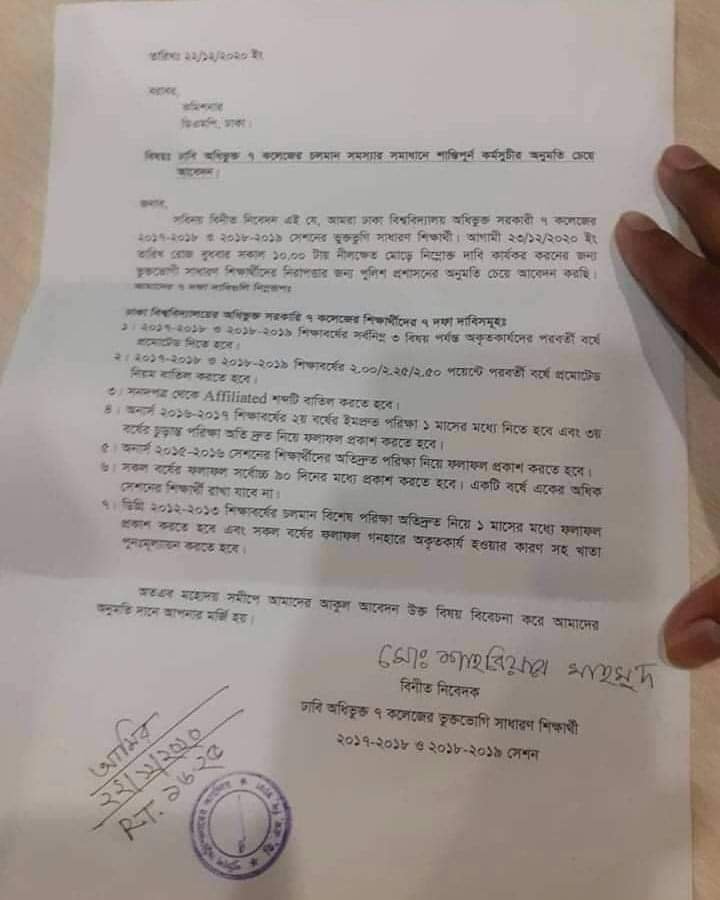 তারিখঃ ২২/১২/২০২০ ইং
বরাবর,
কমিশনার
ডিএমপি, ঢাকা।
বিষয়ঃ ঢাবি অধিভুক্ত ৭ কলেজের চলমান সমস্যার সমাধানে শান্তিপুর্ন কর্মসূচীর অনুমতি চেয়ে
আবেদন।
জনাব,
সবিনয় বিনীত নিবেদন এই যে, আমরা ঢাকা বিশ্ববিদ্যালয় অধিভুক্ত সরকারী ৭ কলেজের
২০১৭-২০১৮ ও ২০১৮-২০১৯ সেশনের ভুক্তভুগি সাধারণ শিক্ষার্থী। আগামী ২৩/১২/২০২০ ইং
তারিখ রোজ বুধবার সকাল ১০.০০ টায় নীলক্ষেত মোড়ে নিম্নোক্ত দাবি কার্যকর করনের জন্য
ভুক্তভোগী সাধারণ শিক্ষার্থীদের নিরাপত্তার জন্য পুলিশ প্রশাসনের অনুমতি চেয়ে আবেদন করছি।
আমাদের ৭ দফা দাবিগুলি নিম্নরূপঃ
ঢাকা বিশ্ববিদ্যালয়ের অধিভুক্ত সরকারি ৭ কলেজের শিক্ষার্থীদের ৭ দফা দাবিসমূহঃ
১। ২০১৭-২০১৮ ও ২০১৮-২০১৯ শিক্ষাবর্ষের সর্বনিম্ন ৩ বিষয় পর্যন্ত অকৃতকার্যদের পরবর্তী বর্ষে
প্রমোটেড দিতে হবে।
২। ২০১৭-২০১৮ ও ২০১৮-২০১৯ শিক্ষাবর্ষের ২.০০/২.২৫/২.৫০ পয়েন্টে পরবর্তী বর্ষে প্রমোটেড
নিয়ম বাতিল করতে হবে।
৩। সনদপত্র থেকে Affiliated শব্দটি বাতিল করতে হবে।
৪। অনার্স ২০১৬-২০১৭ শিক্ষাবর্ষের ২য় বর্ষের ইমপ্রুভ পরিক্ষা ১ মাসের মধ্যে নিতে হবে এবং ৩য়
বর্ষের চুড়ান্ত পরিক্ষা অতি দ্রুত নিয়ে ফলাফল প্রকাশ করতে হবে।
৫। অনার্স ২০১৫-২০১৬ সেশনের শিক্ষার্থীদের অতিদ্রুত পরিক্ষা নিয়ে ফলাফল প্রকাশ করতে হবে।
৬। সকল বর্ষের ফলাফল সর্বোচ্চ ৯০ দিনের মধ্যে প্রকাশ করতে হবে। একটি বর্ষে একের অধিক
সেশনের শিক্ষার্থী রাখা যাবে না।
৭। ডিগ্রি ২০১২-২০১৩ শিক্ষাবর্ষের চলমান বিশেষ পরিক্ষা অতিদ্রুত নিয়ে ১ মাসের মধ্যে ফলাফল
প্রকাশ করতে হবে এবং সকল বর্ষের ফলাফল গনহারে অকৃতকার্য হওয়ার কারণ সহ খাতা
পুনঃমূল্যায়ন করতে হবে।
অতএব মহোদয় সমীপে আমাদের আকুল আবেদন উক্ত বিষয় বিবেচনা করে আমাদের
অনুমতি দানে আপনার মর্জি হয়।
মোঃ শাহরিয়ার মাহমুদ
বিনীত নিবেদক
ঢাবি অধিভুক্ত ৭ কলেজের ভুক্তভোগি সাধারণ শিক্ষার্থী
২০১৭-২০১৮ ও ২০১৮-২০১৯ সেশন
আমির
২২/১২/২০২০
RT. ১৬২৫